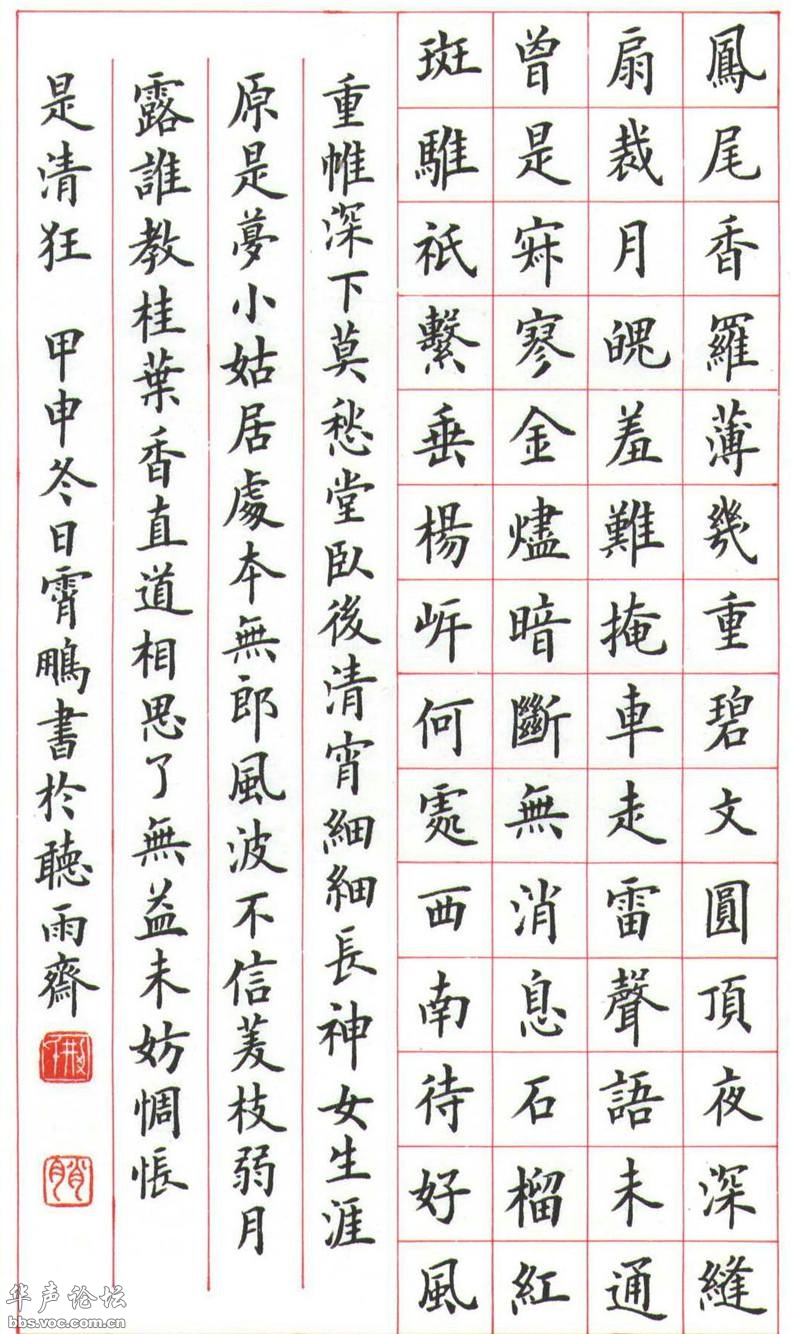 鳳尾香羅薄幾重碧文圓頂夜深縫
扇裁月魄羞難掩車走雷聲語未通
曾是寂寥金燼暗斷無消息石榴紅
斑騅祗繫垂楊岸何處西南待好風
重帷深下莫愁堂臥後清宵細細長神女生涯
原是夢小姑居處本無郎風波不信菱枝弱月
露誰教桂葉香直道相思了無益未妨惆悵
是清狂 甲申冬日霄鵬書於聽雨齋
华声论坛
bbs.voc.com.cn